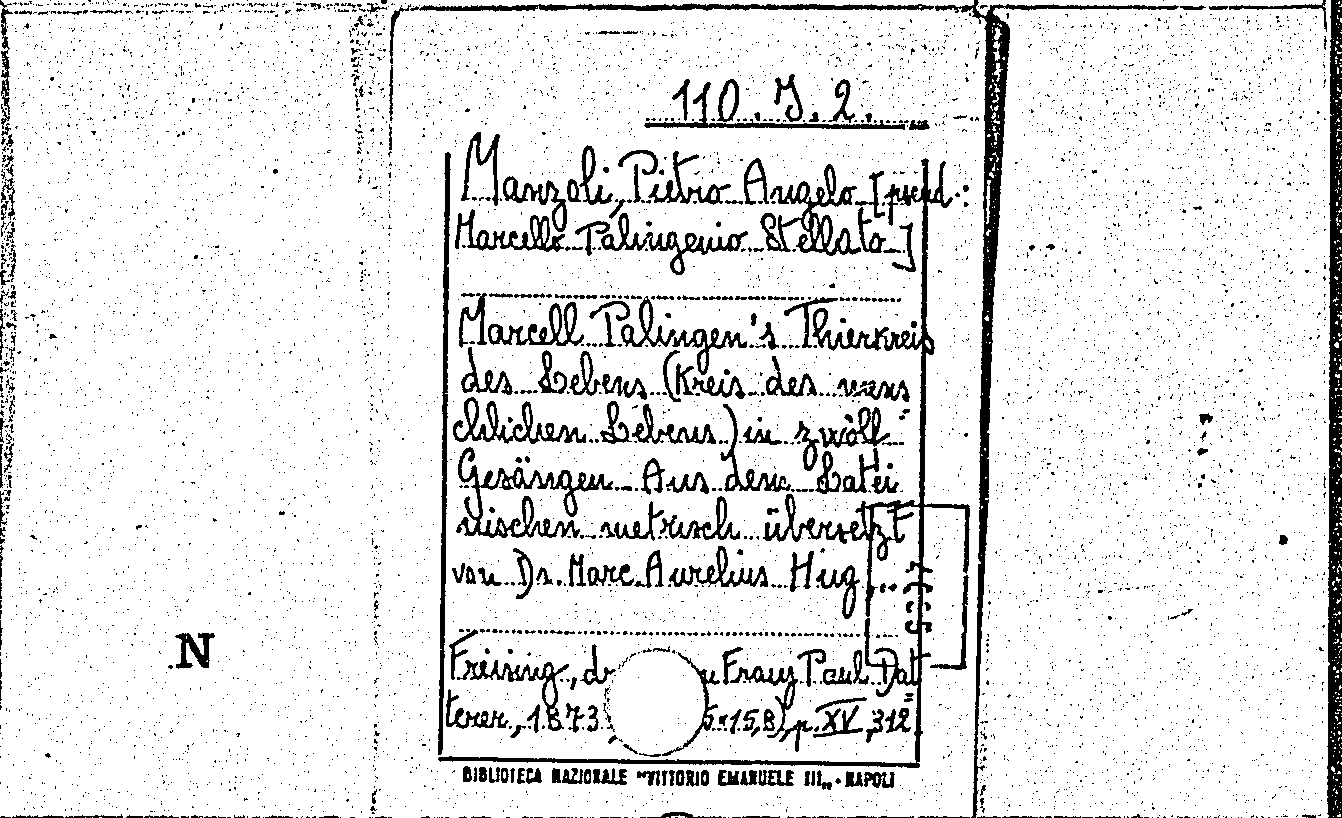 110. J. 2.
Manzoli, Pietro Angelo [pseud.:
Marcello Palingenio Stellato]
Marcell Palingen's Thierkreis
des Lebens (Kreis des mens
chlichen Lebens) in zwölf
Gesängen. Aus dem Latei
nischen metrisch übersetzt
von Dr. Marc. Aurelius Hug...
Freising, Franz Paul Dat
terer, 1873 p. XV, 312.
N
BIBLIOTECA NAZIONALE "VITTORIO EMANUELE III„ - NAPOLI